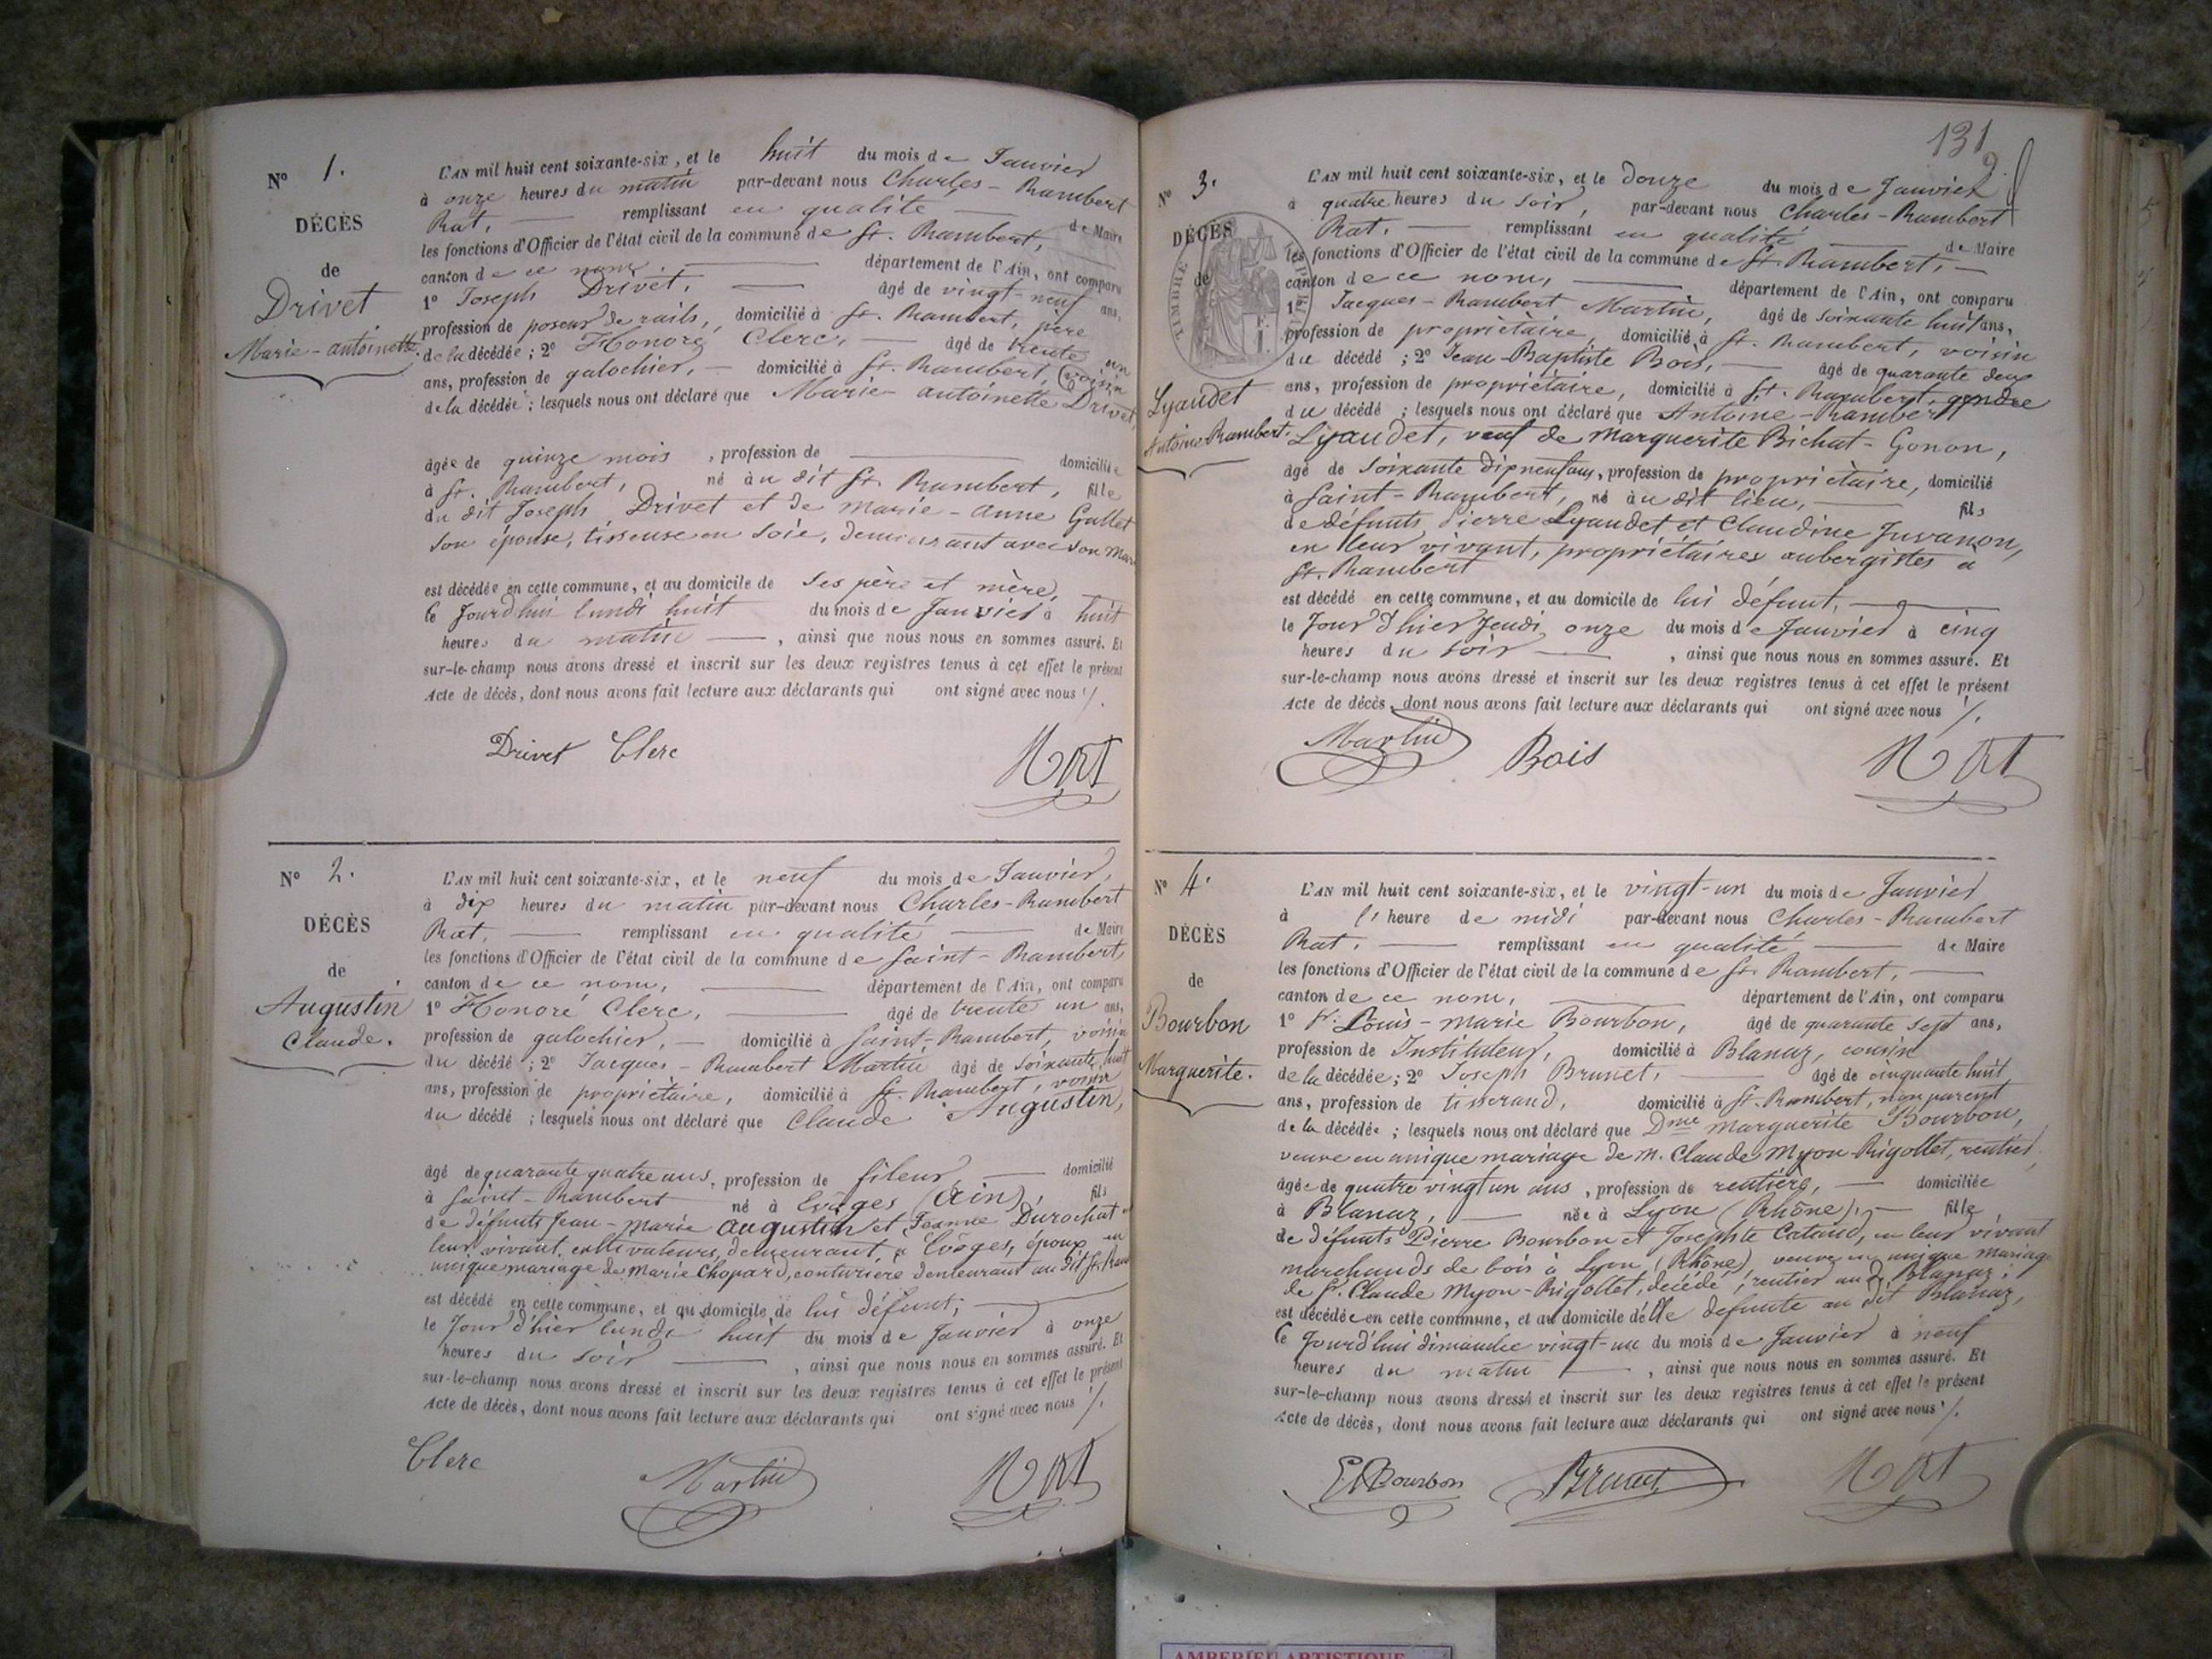 N° 1.
DÉCÈS
de
Drivet
Marie-antoinette.
L'AN mil huit cent soixante-six, et le huit du mois de Janvier
à onze heures du matin par-devant nous Charles-Rambert
Rat, remplissant en qualité de Maire
les fonctions d'Officier de l'état civil de la commune de St. Rambert,
canton de ce nom. département de l'Ain, ont comparu
1° Joseph Drivet, âgé de vingt-neuf ans,
profession de poseur de rails, domicilié à St. Rambert, père
de la décédée ; 2° Honoré Clerc, âgé de trente un
ans, profession de galochier, domicilié à St. Rambert, voisin
de la décédée ; lesquels nous ont déclaré que Marie antoinette Drivet,
âgée de quinze mois, profession de domiciliée
à St. Rambert, né au dit St. Rambert, fille
du dit Joseph Drivet et de marie-anne Gallet
son épouse, tisseuse en soie, demeurant avec son mari
est décédée en cette commune, et au domicile de ses père et mère,
le Jourd'hui lundi huit du mois de Janvier à huit
heures du matin, ainsi que nous nous en sommes assuré. Et
sur-le-champ nous avons dressé et inscrit sur les deux registres tenus à cet effet le présent
Acte de décès, dont nous avons fait lecture aux déclarants qui ont signé avec nous
Drivet Clerc
N° 2.
DÉCÈS
de
Augustin
Claude.
L'AN mil huit cent soixante-six, et le neuf du mois de Janvier,
à dix heures du matin par-devant nous Charles-Rambert
Rat, remplissant en qualité de Maire
les fonctions d'Officier de l'état civil de la commune de Saint-Rambert,
canton de ce nom, département de l'Ain, ont comparu
1° Honoré Clerc, âgé de trente un ans,
profession de galochier, domicilié à Saint-Rambert, voisin
du décédé ; 2° Jacques-Rambert Martin âgé de soixante huit
ans, profession de propriétaire, domicilié à St. Rambert, voisin
du décédé ; lesquels nous ont déclaré que Claude Augustin,
âgé de quarante quatre ans, profession de fileur, domicilié
à Saint-Rambert né à Evôges (Ain), fils
de défunts Jean-marie Augustin et Jeanne Durochat en
leur vivant cultivateurs, demeurant à Evôges, époux en
unique mariage de Marie Chopard, couturière demeurant au dit St. Ram
est décédé en cette commune, et au domicile de lui défunt,
le Jour d'hier lundi huit du mois de Janvier à onze
heures du soir, ainsi que nous nous en sommes assuré. Et
sur-le-champ nous avons dressé et inscrit sur les deux registres tenus à cet effet le présent
Acte de décès, dont nous avons fait lecture aux déclarants qui ont signé avec nous
Clerc Martin
131
N° 3.
DÉCÈS
de
TIMBRE
Lyaudet
Antoine Rambert.
L'AN mil huit cent soixante-six, et le douze du mois de Janvier
à quatre heures du soir, par-devant nous Charles-Rambert
Rat, remplissant en qualité de Maire
les fonctions d'Officier de l'état civil de la commune de St. Rambert,
canton de ce nom, département de l'Ain, ont comparu
1° Jacques-Rambert Martin, âgé de soixante huit ans,
profession de propriétaire, domicilié à St. Rambert, voisin
du décédé ; 2° Jean-Baptiste Bois, âgé de quarante deux
ans, profession de propriétaire, domicilié à St. Rambert, gendre
du décédé ; lesquels nous ont déclaré que Antoine-Rambert
Lyaudet, veuf de marguerite Bichat-Gonon,
âgé de soixante dix neuf ans, profession de propriétaire, domicilié
à Saint-Rambert, né au dit lieu, fils
de défunts Pierre Lyaudet et Claudine Juvanon,
en leur vivant, propriétaires aubergistes à
St. Rambert
est décédé en cette commune, et au domicile de lui défunt,
le Jour d'hier Jeudi onze du mois de Janvier à cinq
heures du soir, ainsi que nous nous en sommes assuré. Et
sur-le-champ nous avons dressé et inscrit sur les deux registres tenus à cet effet le présent
Acte de décès, dont nous avons fait lecture aux déclarants qui ont signé avec nous
Martin Bois
N° 4.
DÉCÈS
de
Bourbon
Marguerite.
L'AN mil huit cent soixante-six, et le vingt-un du mois de Janvier
à l'heure de midi par-devant nous Charles-Rambert
Rat, remplissant en qualité de Maire
les fonctions d'Officier de l'état civil de la commune de St. Rambert,
canton de ce nom, département de l'Ain, ont comparu
1° Louis-marie Bourbon, âgé de quarante sept ans,
profession de Instituteur, domicilié à Blanaz, cousin
de la décédée ; 2° Joseph Brunet, âgé de cinquante huit
ans, profession de tisserand, domicilié à St. Rambert, non parent
de la décédée ; lesquels nous ont déclaré que Dme marguerite Bourbon,
veuve en unique mariage de M. Claude Myon-Rigollet, rentier,
âgée de quatre vingt un ans, profession de rentière, domiciliée
à Blanaz, née à Lyon (Rhône), fille
de défunts Pierre Bourbon et Josephte Cataud, en leur vivant
marchands de bois à Lyon (Rhône), veuve en unique mariage
de Sr. Claude Myon-Rigollet, décédé, rentier au dt Blanaz;
est décédée en cette commune, et au domicile d'elle défunte au dit Blanaz,
le Jourd'hui dimanche vingt-un du mois de Janvier à neuf
heures du matin, ainsi que nous nous en sommes assuré. Et
sur-le-champ nous avons dressé et inscrit sur les deux registres tenus à cet effet le présent
Acte de décès, dont nous avons fait lecture aux déclarants qui ont signé avec nous
Bourbon Brunet
AMBERIEU ARTISTIQUE